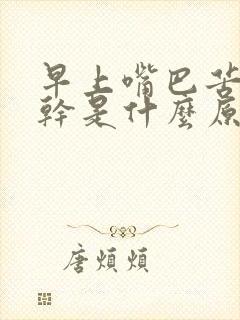 早上嘴巴苦
幹是什麼原
唐煩煩